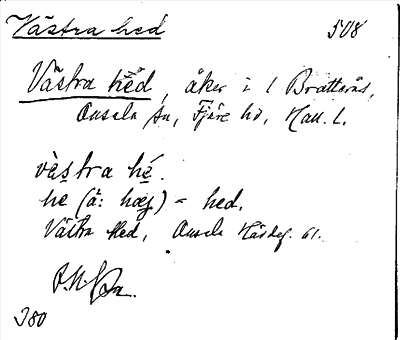 Västra hed 508
Västra hed, åker i 1 Brattarås,
Onsala sn, Fjäre hd, Hall. l.
vès̱tra hé.
he (ä: hæj) = hed.
Västra Hed, Onsala Häsdef. 61.
380